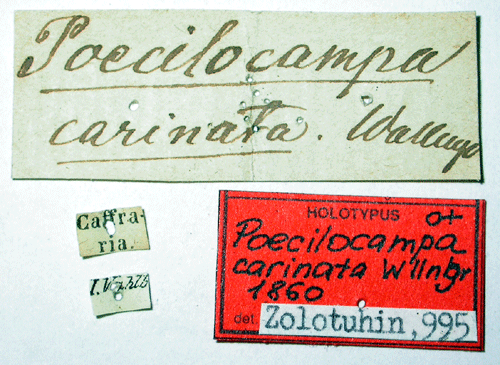 Poecilocampa
carinata. Wallengr
Caffra-
ria.
J. Wahlb.
HOLOTYPUS ♀
Poecilocampa
carinata Wllngr
1860
det. Zolotuhin, 995